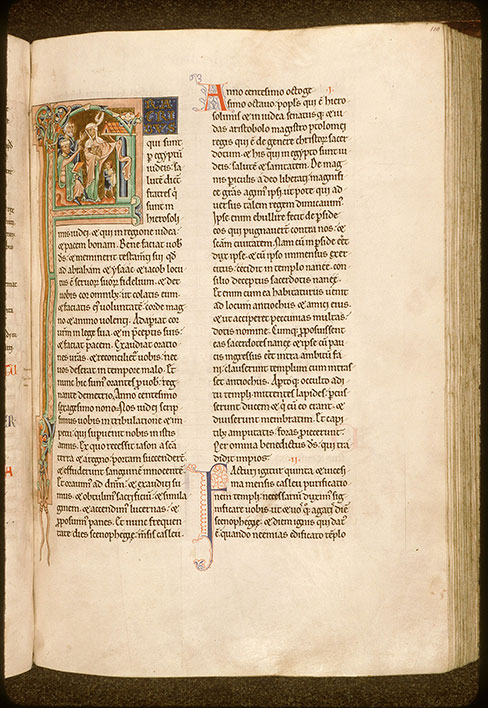 qui sunt
p egyptū
iudeis sa
lutē dict
fratres q̄
sunt in
hierosoli
mis iudei ⁊ qui in regione iudea ·
⁊ pacem bonam · Bene faciat uob
ds̄ · ⁊ meminerit testamti sui qd̄
ad abraham ⁊ ysaac ⁊ iacob locu
tus ē seruoꝝ suoꝝ fidelium · ⁊ det
uobis cor omnibꝫ ut colatis eum
⁊ faciatis eꝰ uoluntatē · corde mag
no ⁊ animo uolenti · Adapiat cor
urm̄ in lege sua · ⁊ in p̄ceptis suis ·
⁊ faciat pacem · Exaudiat oratio
nes ur̄as · ⁊ reconcilietꝰ uobis · nec
uos deserat in tempore malo · Et
nunc hic sumꝰ orantes p uob · reg
nante demetrio · Anno centesimo
sexagesimo nono · Nos iudei scrip
simus uobis in tribulatione ⁊ im
petu qui supuenit nobis in istis
annis · Ex quo recessit iason a sc̄a
terra ⁊ a regno · portam succenderꝰ
⁊ effuderunt sanguinē innocentē ·
Et orauimꝰ ad dn̄m · ⁊ exauditi su
mus · ⁊ obtulimꝰ sacrificiū · ⁊ simila
ginem · ⁊ accendimꝰ lucernas · ⁊
p̱posuimꝰ panes · Et nunc frequen
tate dies scenophegie · msis casleu ·
110
Anno centesimo octoge · I ·
simo octauo · popl̄s qui ē hiero
solimis ⁊ in iudea senatusq̄ · ⁊ iu
das aristobolo magistro ptolomei
regis qui ē de genere christoꝝ sacer
dotum · ⁊ his qui in egypto sunt iu
deis · salutē ⁊ sanitatem · De mag
nis piculis a deo liberati · magnifi
ce grās agimꝰ ipsi · ut pote qui ad
uersus talem regem dimicauimꝰ ·
Ipse enim ebullire fecit de pside
eos qui pugnauert̄ contra nos · ⁊
sc̄am ciuitatem · Nam cū in pside eēt
dux ipse · ⁊ cū ipso inmensus exer
citus · cecidit in templo naneę · con
silio deceptus sacerdotis naneę ·
Et enim cum ea habitaturus uenit
ad locum antiochus · ⁊ amici eius ·
⁊ ut acciperet pecunias multas ·
dotis nomine · Cumq̄ p̱posuissent
eas sacerdotes naneę · ⁊ ipse cū pau
cis ingressus eēt intra ambitū fa
ni · clauserunt templum cum intras
set antiochus · Aptoq̄ occulto adi
tu templi · mittentes lapides · pcus
serunt ducem ⁊ q̄ cū eo erant · ⁊
diuiserunt membratim · Et capi
tibꝰ amputatis · foras p̱iecerunt ·
Per omnia benedictus ds̄ · qui tra
didit impios · II ·
Facturi igitur quinta ⁊ uicesi
ma mensis casleu purificatio
nem templi · necessariū duximꝰ sig
nificare uobis · ut ⁊ uos q̄ agatis diē
scenophegię · ⁊ diem ignis qui datꝰ
ē · quando neemias edificato tēplo